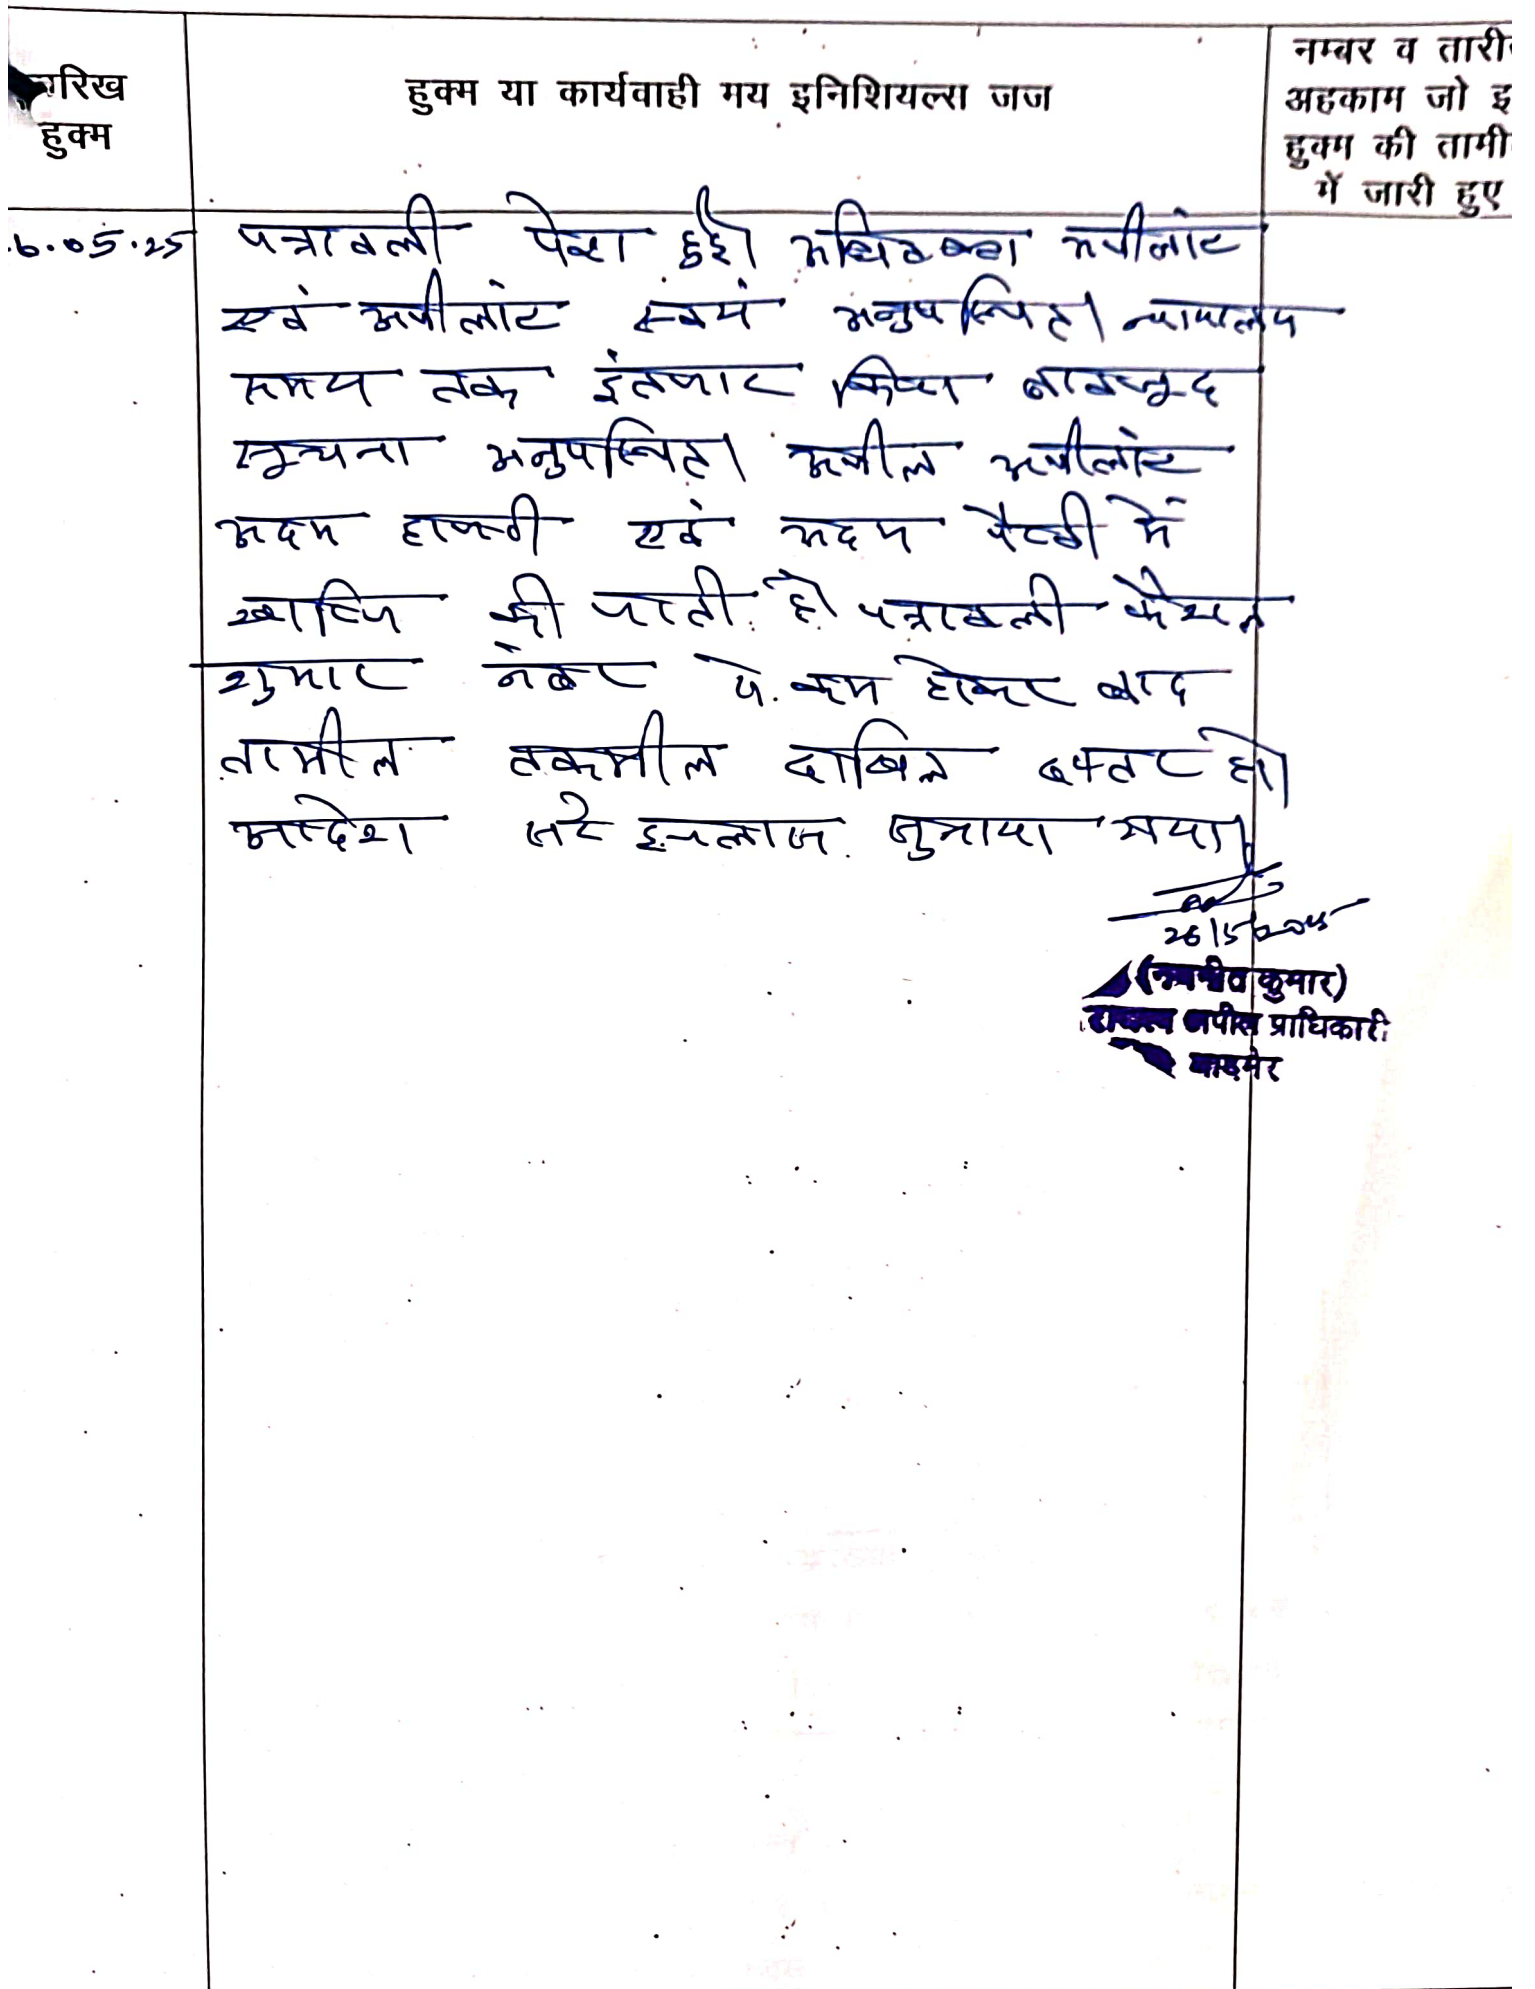 तारिख
हुक्म
हुक्म या कार्यवाही मय इनिशियल्स जज
नम्बर व तारी
अहकाम जो इ
हुक्म की तामी
में जारी हुए
6.05.25
पत्रावली पेश हुई। अधिवक्ता अपीलांट
एवं अपीलांट स्वयं अनुपस्थित। न्यायालय
समय तक इंतजार किया बावजूद
सूचना अनुपस्थित। अपील अपीलांट
अदम हाजरी एवं अदम पैरवी में
खारिज की जाती है। पत्रावली फैसल
शुमार नंबर से कम होकर बाद
तामील तकमील दाखिल दफ्तर हो।
आदेश सरे इजलास सुनाया गया।
26/5/2025
(नवनीत कुमार)
राजस्व अपील प्राधिकारी
बाड़मेर